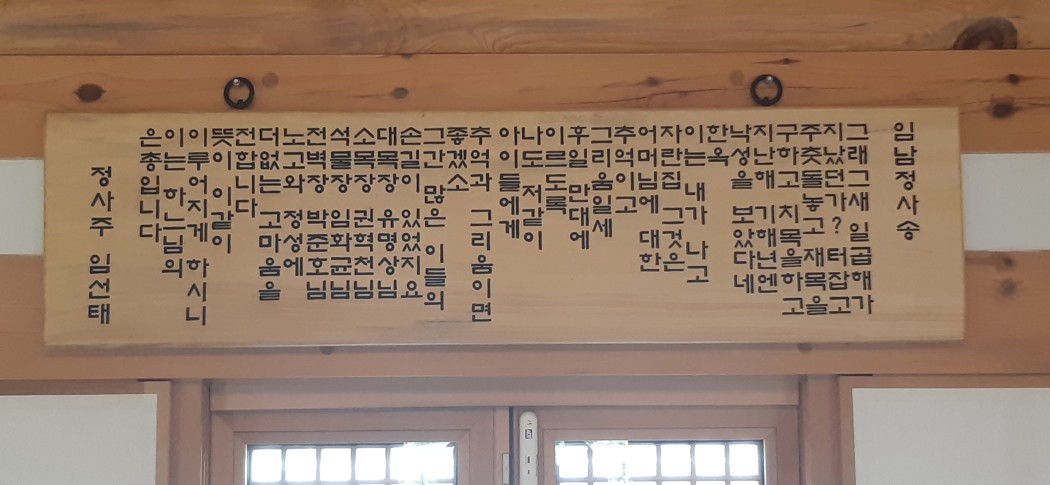 임남정사송
그래그새 일곱해가
지났던가? 터잡고
주춧돌놓고 재목을
구하고 치목을하고
지난해 기해년엔
낙성을 보았다네
한옥
이는 내가 나고
자란집 그것은
어머님에 대한
추억이고
그리움일세
후일 만대에
이르도록
나도 저같이
아이들에게
추억과 그리움이면
좋겠소
그간 많은 이들의
손길이 있었지요
대목장 유명상님
소목장 권혁천님
석물장 임화균님
전벽장 박준호님
노고와 정성에
더없는 고마움을
전합니다
뜻이 이같이
이루어지게 하시니
이는 하느님의
은총입니다
정사주 임선태